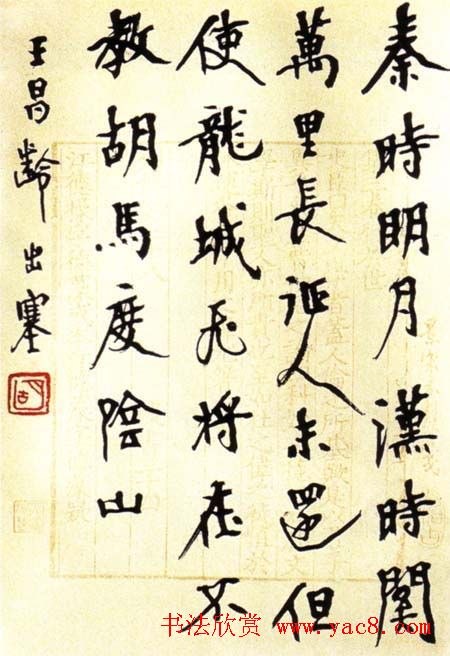 秦時明月漢時關
萬里長征人未還但
使龍城飛将在不
教胡馬度陰山
王昌齡出塞
书法欣赏 www.yac8.com